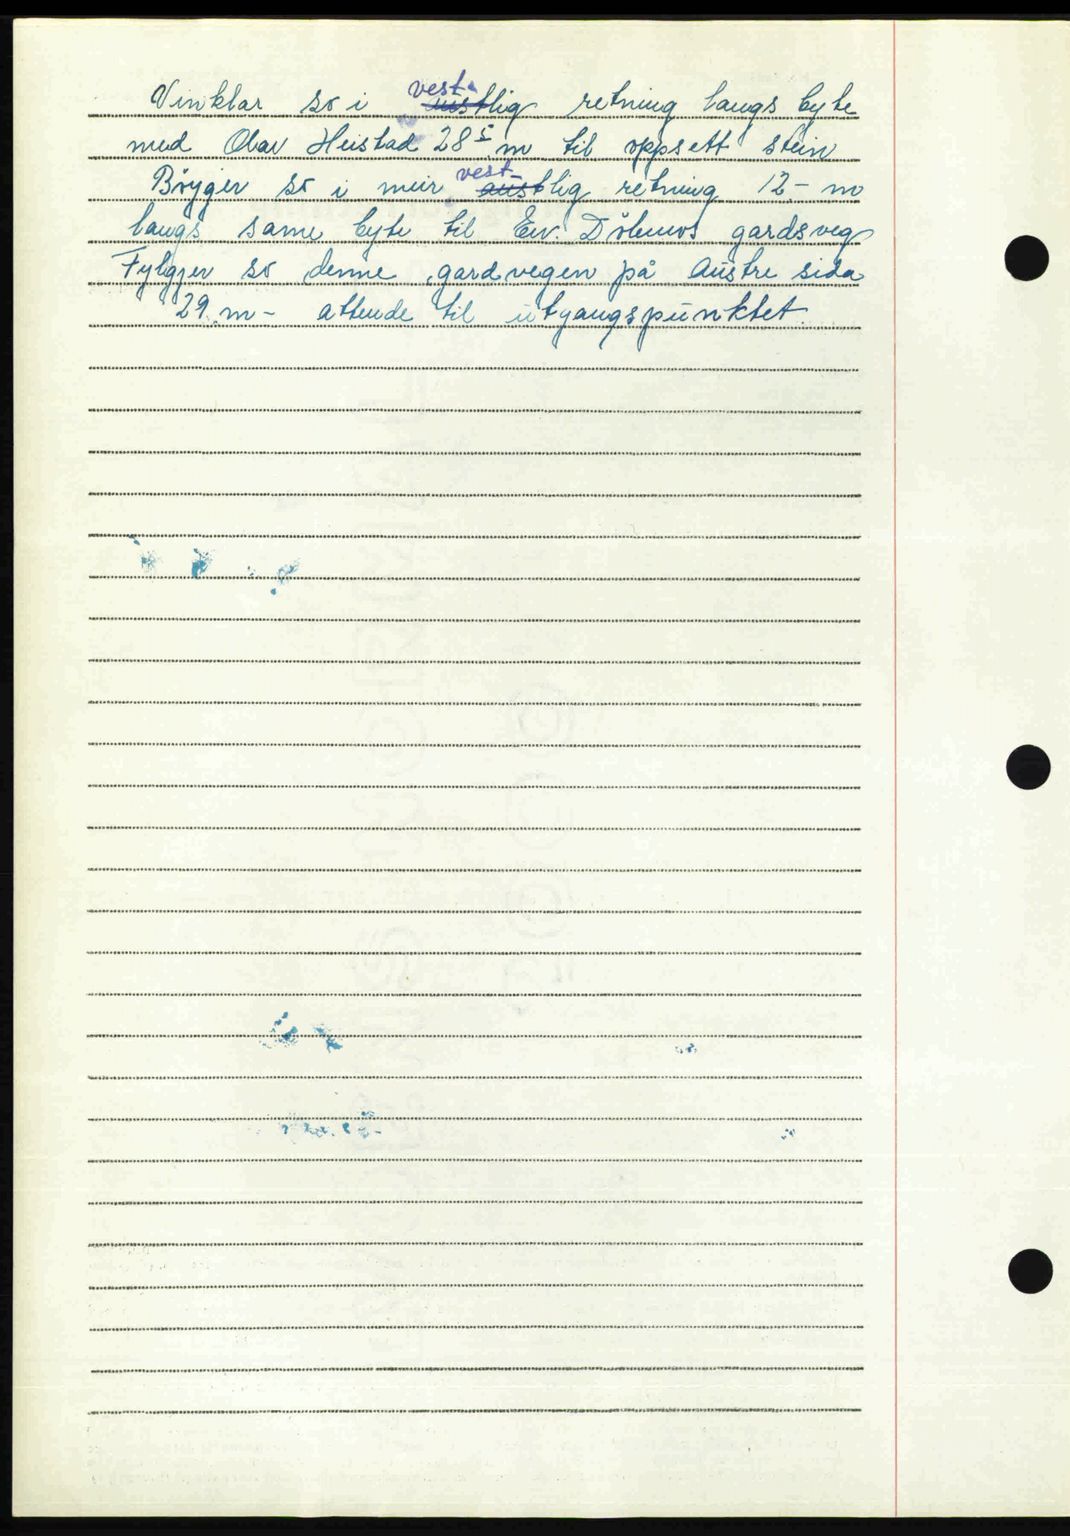 Vinklar so i vest-lig retning langs byte
med Olav Heistad 28⁵ m til oppsett stein
Bøygjer so i meir vest-lig retning 12 - m
langs same byte til Eiv. Dølemos gardsveg
Fylgjer so denne gardvegen på Austre sida
29 m - attende til utgangspunktet.